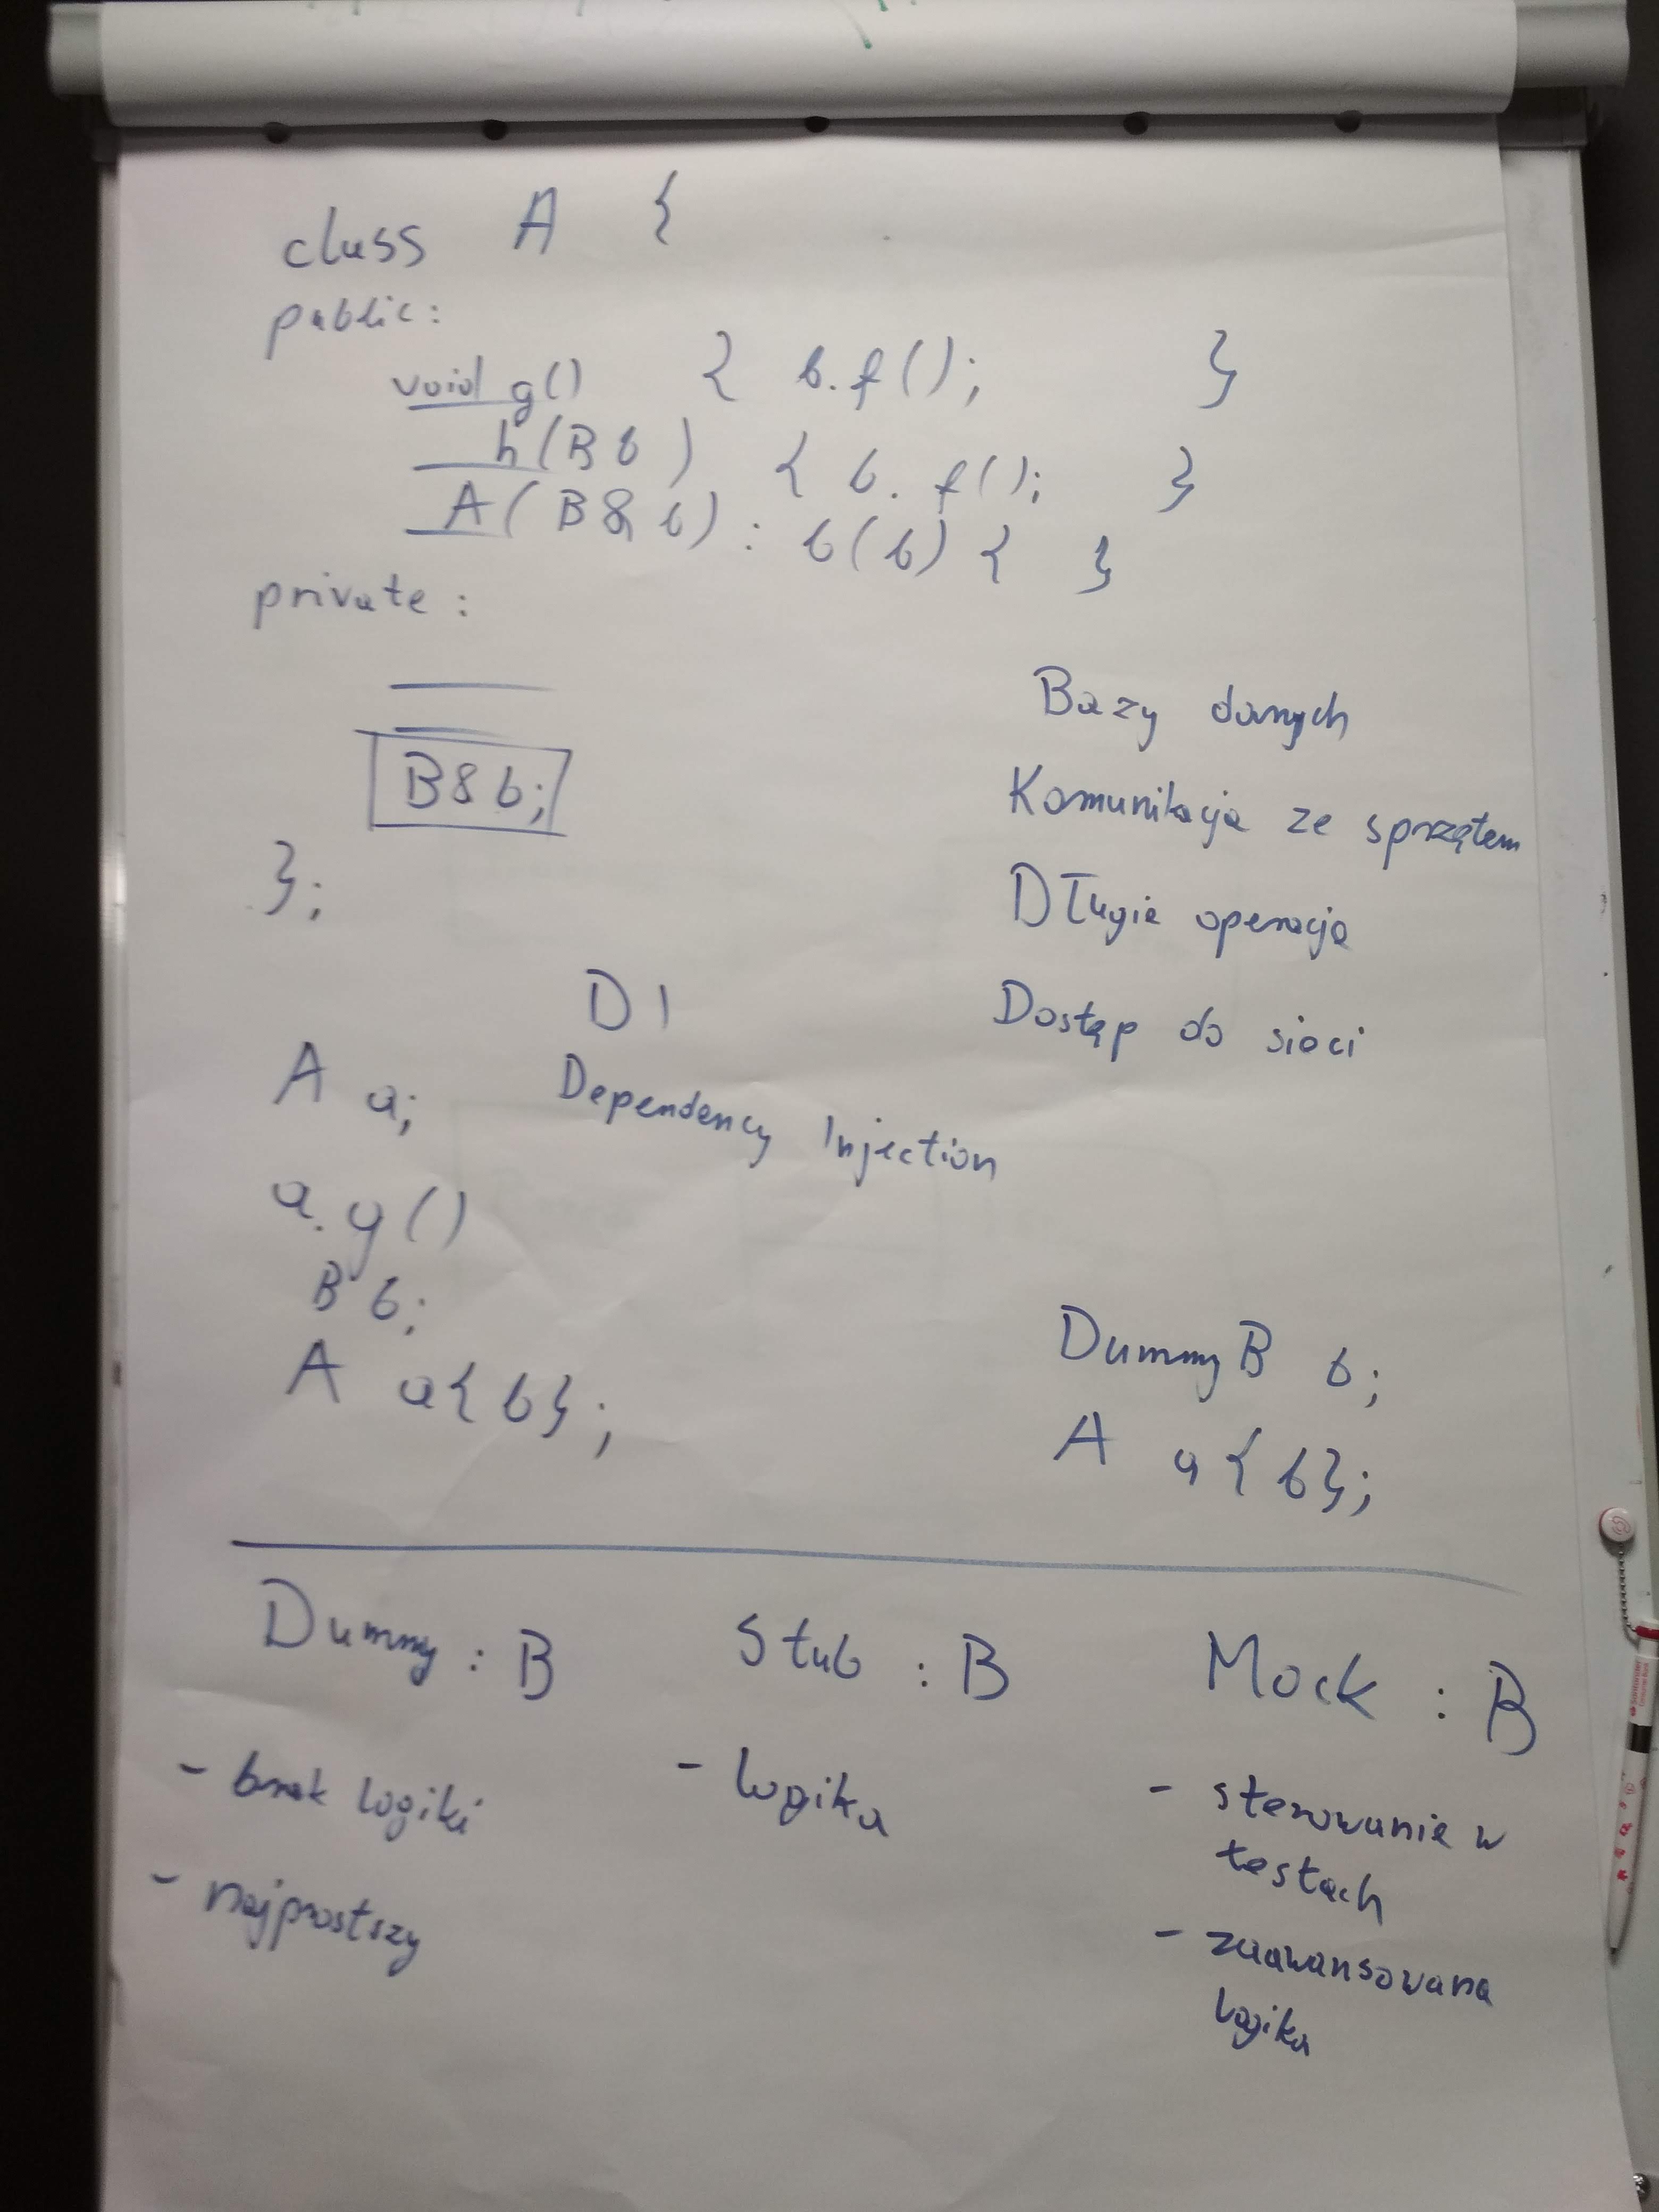 class A {
public:
void g() { b.f(); }
h(B b) { b.f(); }
A(B& b) : b(b) { }
private:
B& b;
};
Bazy danych
Komunikacja ze sprzętem
Długie operacje
Dostęp do sieci
DI
Dependency Injection
A a;
a.g()
B b;
A a{b};
DummyB b;
A a{b};
Dummy : B
- brak logiki
- najprostszy
Stub : B
- logika
Mock : B
- sterowanie w
testach
- zaawansowana
logika